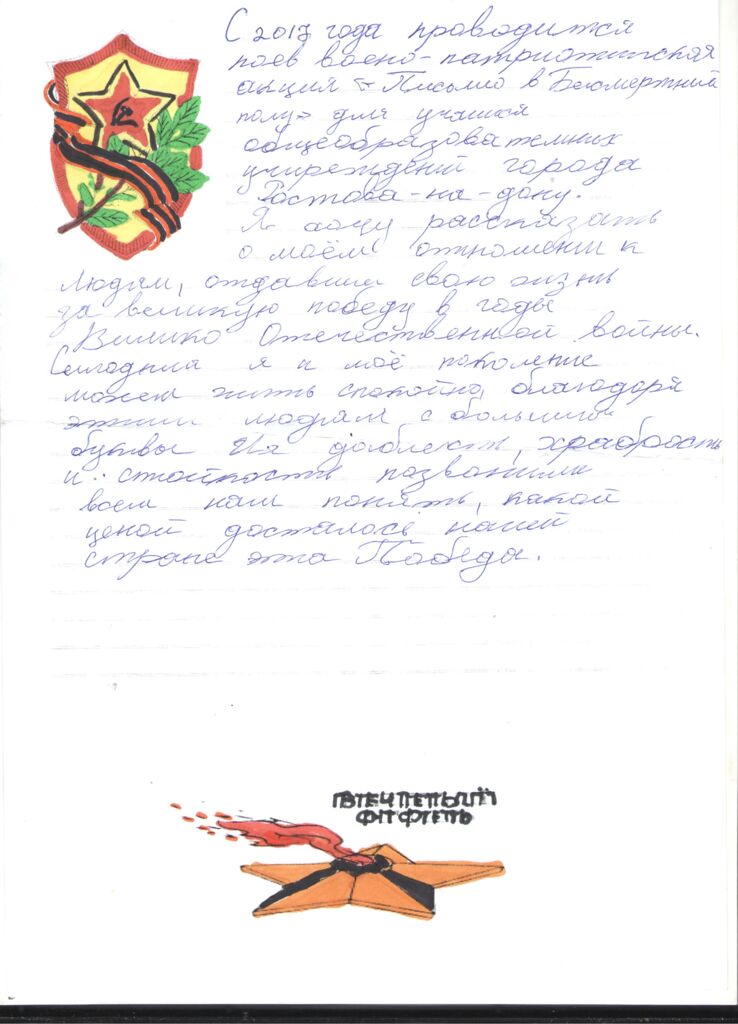 С 2017 года проводится
поев воено-патриотическая
акция «Письмо в Бессмертный
полк» для учашися
общеобразовательных
учреждений города
Ростова-на-дону.
Я хочу рассказать
о моём отношении к
людям, отдавшим свою жизнь
за великую победу в годы
Велико Отечественной войны.
Сегодня я и моё поколение
можем жить спокойно, благодоря
этим людям с большой
буквы Их доблесть, храбрость
и стойкость позволили
всем нам понять, какой
ценой досталось нашей
стране эта Победа.